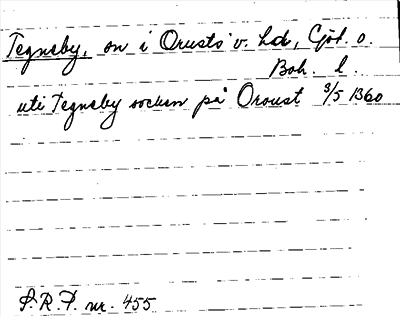 Tegneby, sn i Orusts v. hd, Göt. o.
Boh. l.
uti Tegneby sochen på Oroust 3/5 1360
S.R.P. nr. 455